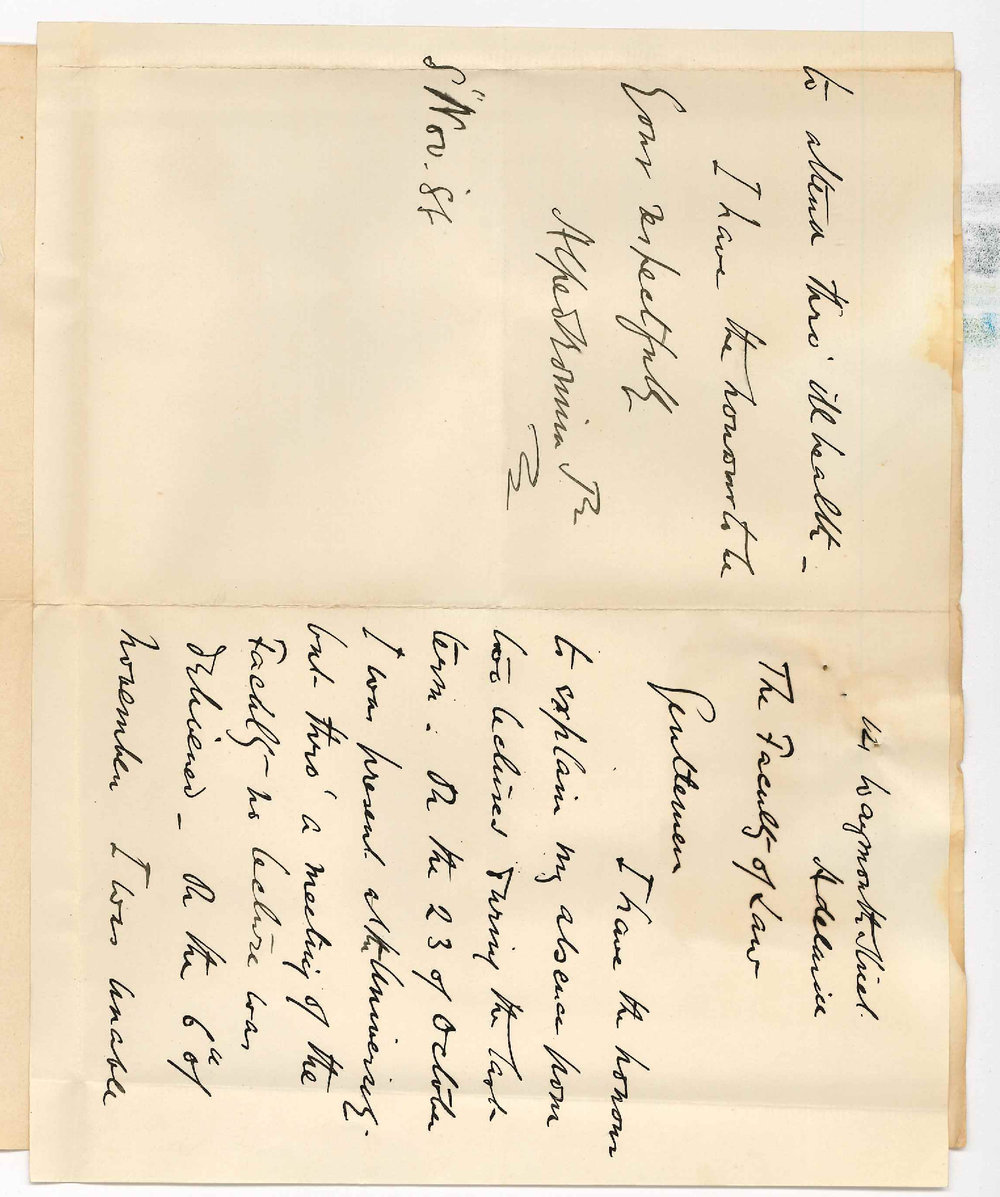 Waymouth Street.
Adelaide
The Faculty of Law
Gentlemen
I have the honour
to explain my absence from
two lectures during the last
term. On the 23 of October
I was present at the University.
but thro' a meeting of the
Faculty no lecture was
delivered – On the 6th of
November I was unable
to attend thro' ill health –
I have the honour to be
Yours respectfully
Alfred
Nov. 84